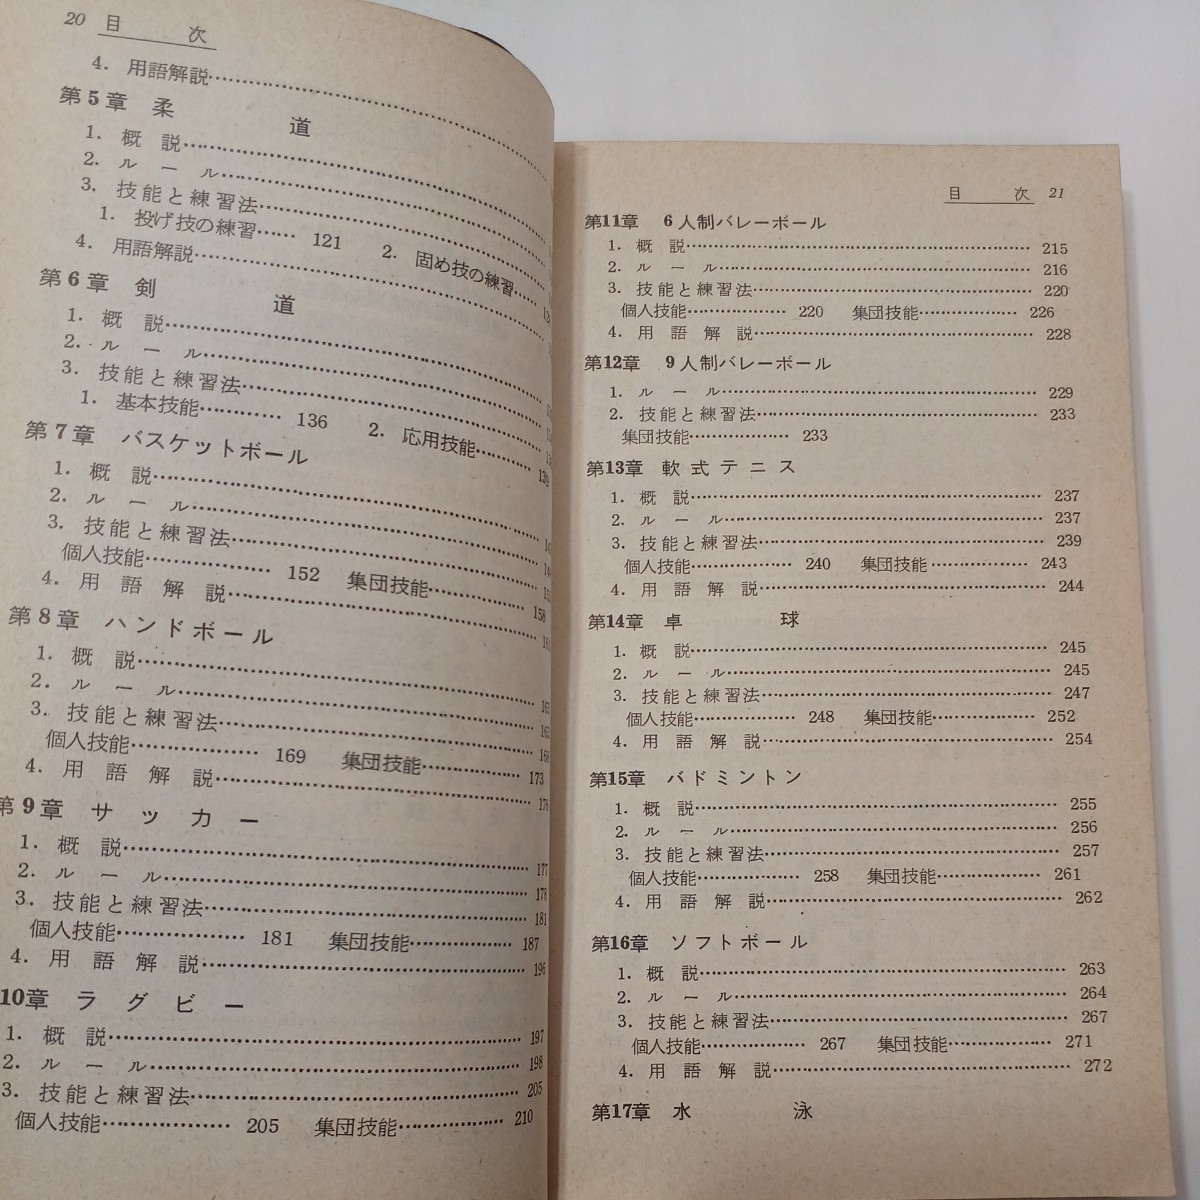 20 目次
4. 用語解説
第5章 柔道
1. 概説
2. ルール
3. 技能と練習法
1. 投げ技の練習…… 121 2. 固め技の練習……
4. 用語解説
第6章 剣道
1. 概説
2. ルール
3. 技能と練習法
1. 基本技能………… 136 2. 応用技能………… 139
第7章 バスケットボール
1. 概説
2. ルール
3. 技能と練習法
個人技能……………… 152 集団技能……………… 158
4. 用語解説
第8章 ハンドボール
1. 概説
2. ルール
3. 技能と練習法 168
個人技能……………… 169 集団技能……………… 173
4. 用語解説 176
第9章 サッカー
1. 概説 177
2. ルール 178
3. 技能と練習法 181
個人技能……………… 181 集団技能……………… 187
4. 用語解説 196
10章 ラグビー
1. 概説 197
2. ルール 198
3. 技能と練習法 205
個人技能……………… 205 集団技能……………… 210
目次 21
第11章 6人制バレーボール
1. 概説 215
2. ルール 216
3. 技能と練習法 220
個人技能……………… 220 集団技能……………… 226
4. 用語解説 228
第12章 9人制バレーボール
1. ルール 229
2. 技能と練習法 233
集団技能……………… 233
第13章 軟式テニス
1. 概説 237
2. ルール 237
3. 技能と練習法 239
個人技能……………… 240 集団技能……………… 243
4. 用語解説 244
第14章 卓球
1. 概説 245
2. ルール 245
3. 技能と練習法 247
個人技能……………… 248 集団技能……………… 252
4. 用語解説 254
第15章 バドミントン
1. 概説 255
2. ルール 256
3. 技能と練習法 257
個人技能……………… 258 集団技能……………… 261
4. 用語解説 262
第16章 ソフトボール
1. 概説 263
2. ルール 264
3. 技能と練習法 267
個人技能……………… 267 集団技能……………… 271
4. 用語解説 272
第17章 水泳